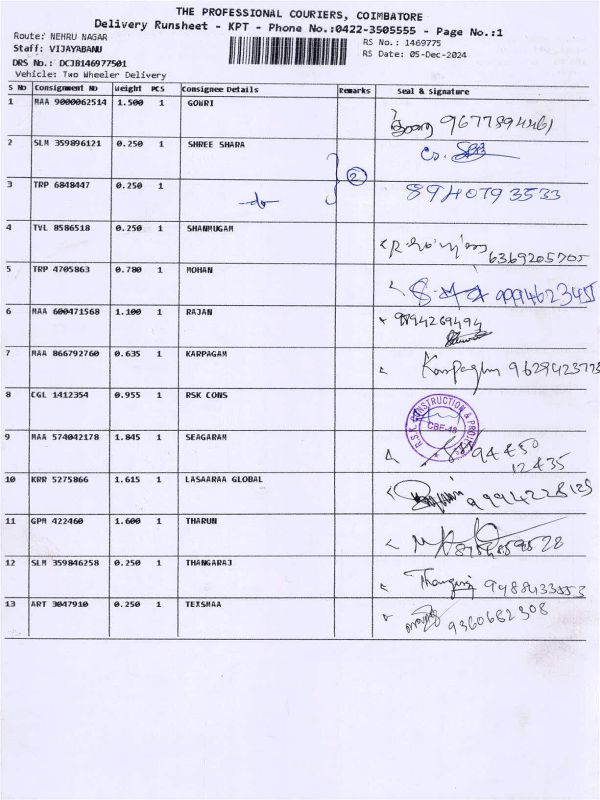 THE PROFESSIONAL COURIERS, COIMBATORE
Delivery Runsheet - KPT - Phone No.:0422-3505555 - Page No.:1
Route: NEHRU NAGAR
Staff: VIJAYABANU
RS No.: 1469775
DRS No.: DCJB146977501
RS Date: 05-Dec-2024
Vehicle: Two Wheeler Delivery
S No Consignment No Weight PCS Consignee Details Remarks Seal & Signature
1 MAA 9000062514 1.500 1 GOWRI 9677894461
2 SLM 359896121 0.250 1 SHREE SHARA
3 TRP 6848447 0.250 1 -do- 2 8940793533
4 TVL 8586518 0.250 1 SHANMUGAM 6369205705
5 TRP 4705863 0.780 1 MOHAN
6 MAA 600471568 1.100 1 RAJAN 9894269494
7 MAA 866792760 0.635 1 KARPAGAM Karpagam
8 CGL 1412354 0.955 1 RSK CONS
R.S.K. CONSTRUCTION & PROJ
CBE-48
9 MAA 574042178 1.845 1 SEAGARAM 94450
12435
10 KRR 5275866 1.615 1 LASAARAA GLOBAL 9994228129
11 GPM 422460 1.600 1 THARUN
12 SLM 359846258 0.250 1 THANGARAJ 9488433553
13 ART 3047910 0.250 1 TEXSMAA 9360682308